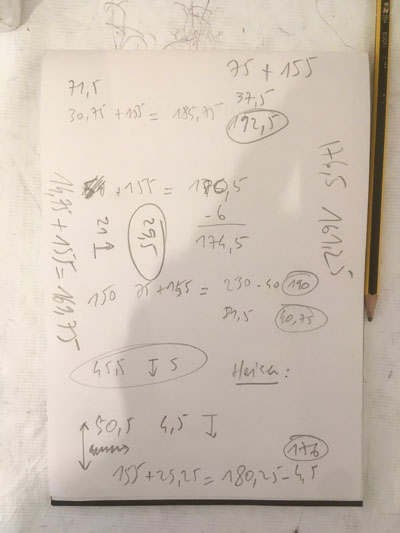 75 + 155
71,5
37,5
30,75 + 155 = 185,75
192,5
176,5 161,25
+ 155 = 176,5
- 6
174,5
21
29,5
14,75 + 155 = 169,75
150 75 + 155 = 230 - 40 190
81,5 40,75
45,5 5
50,5 4,5
176
155 + 25,25 = 180,25 - 4,5